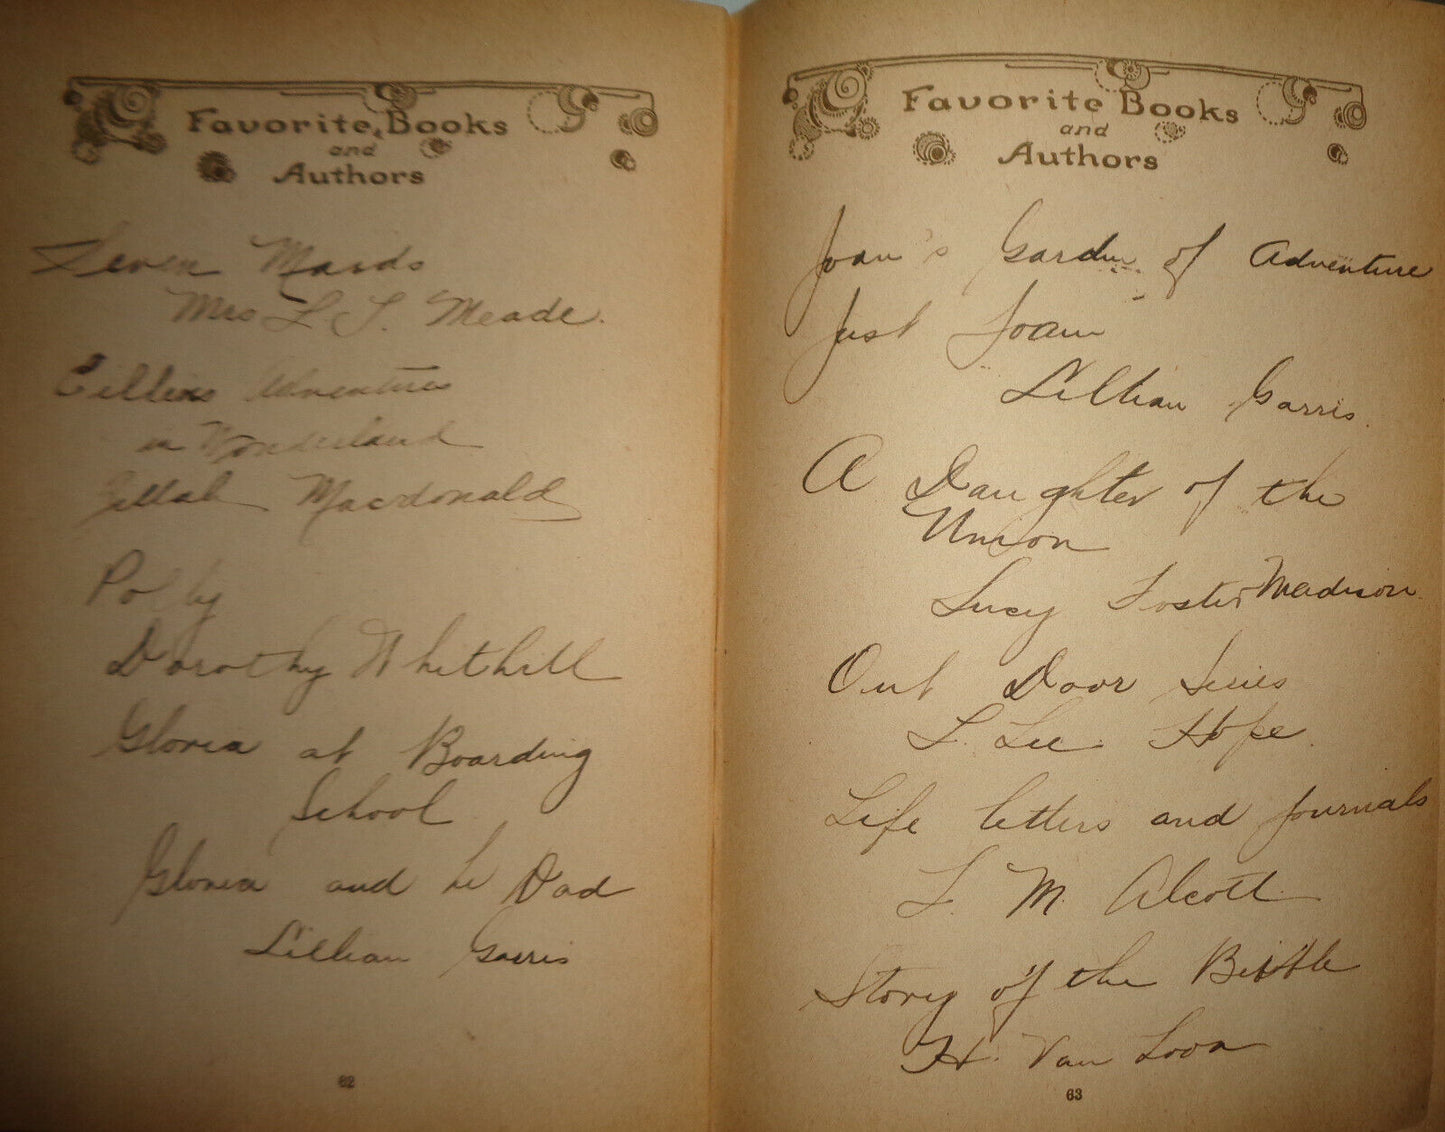 Favorite Books
and
Authors
Seven Maids
Mrs L T. Meade.
Eilleens Adventures
in Wonderland
Zillah Macdonald
Polly
Dorothy Whithill
Gloria at Boarding
School
Gloria and he Dad
Lillian Garris
62
Favorite Books
and
Authors
Joan's Garden of Adventure
Just Joan
Lillian Garris.
A Daughter of the
Union
Lucy Foster Madison
Out Door Series
L. Lee Hope.
Life letters and Journals
L. M. Alcott
Story of the Bible
H. Van Loon
63